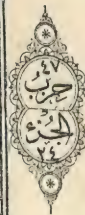 ٤٧
حزب
الجزء
٢٤